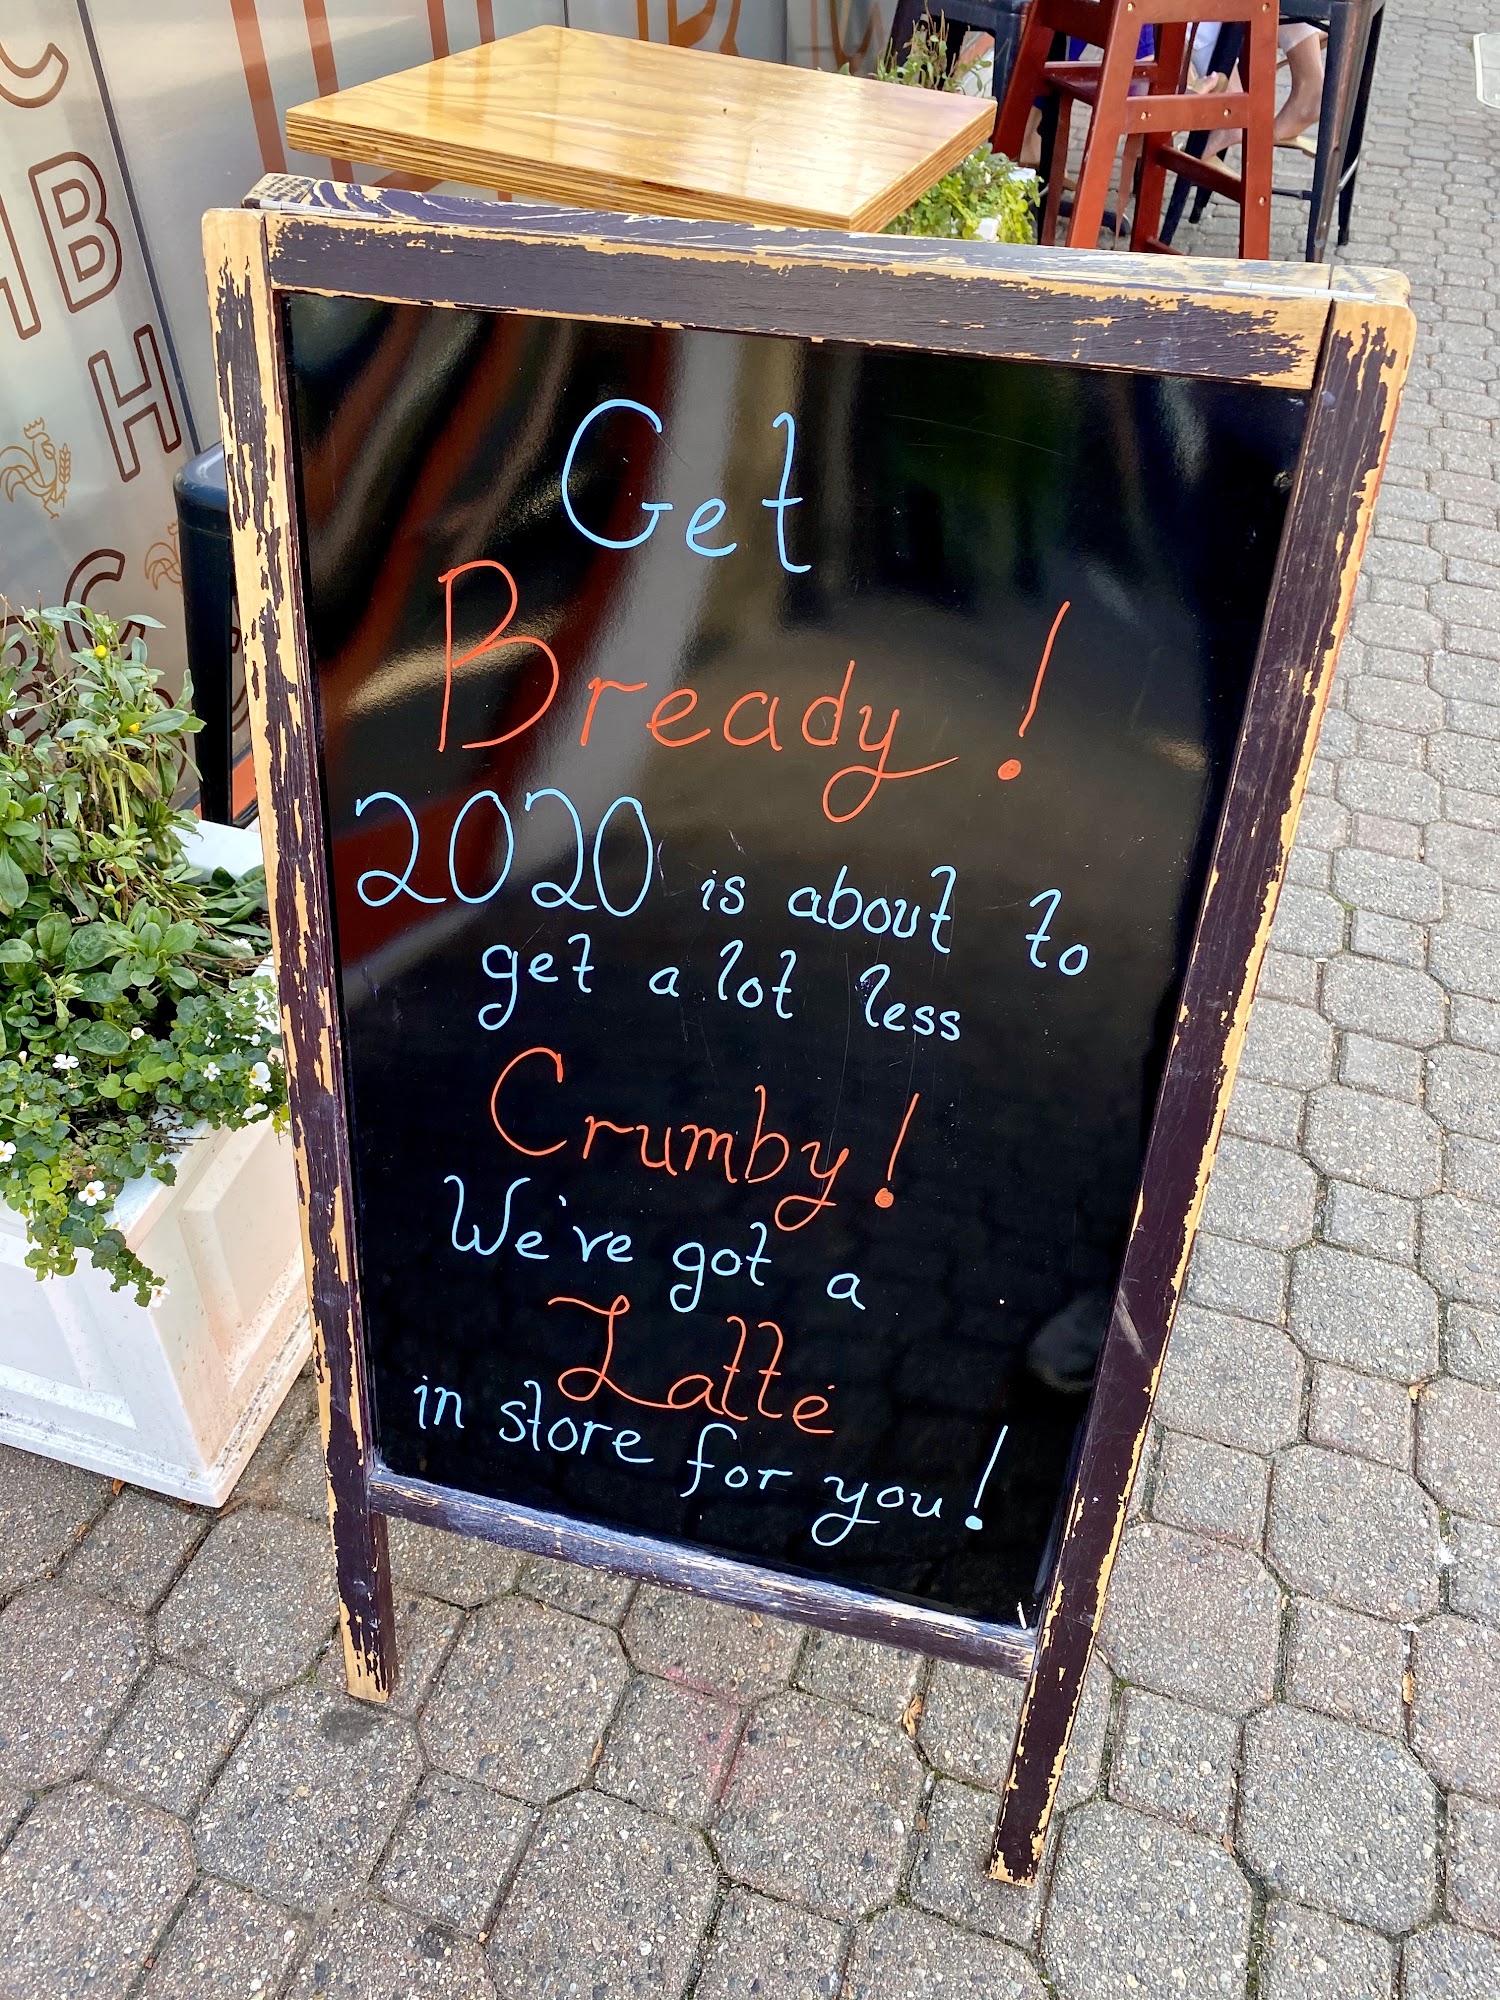 Get
Bready!
2020 is about to
get a lot less
Crumby!
We've got a
Latté
in store for you!
C
B
H